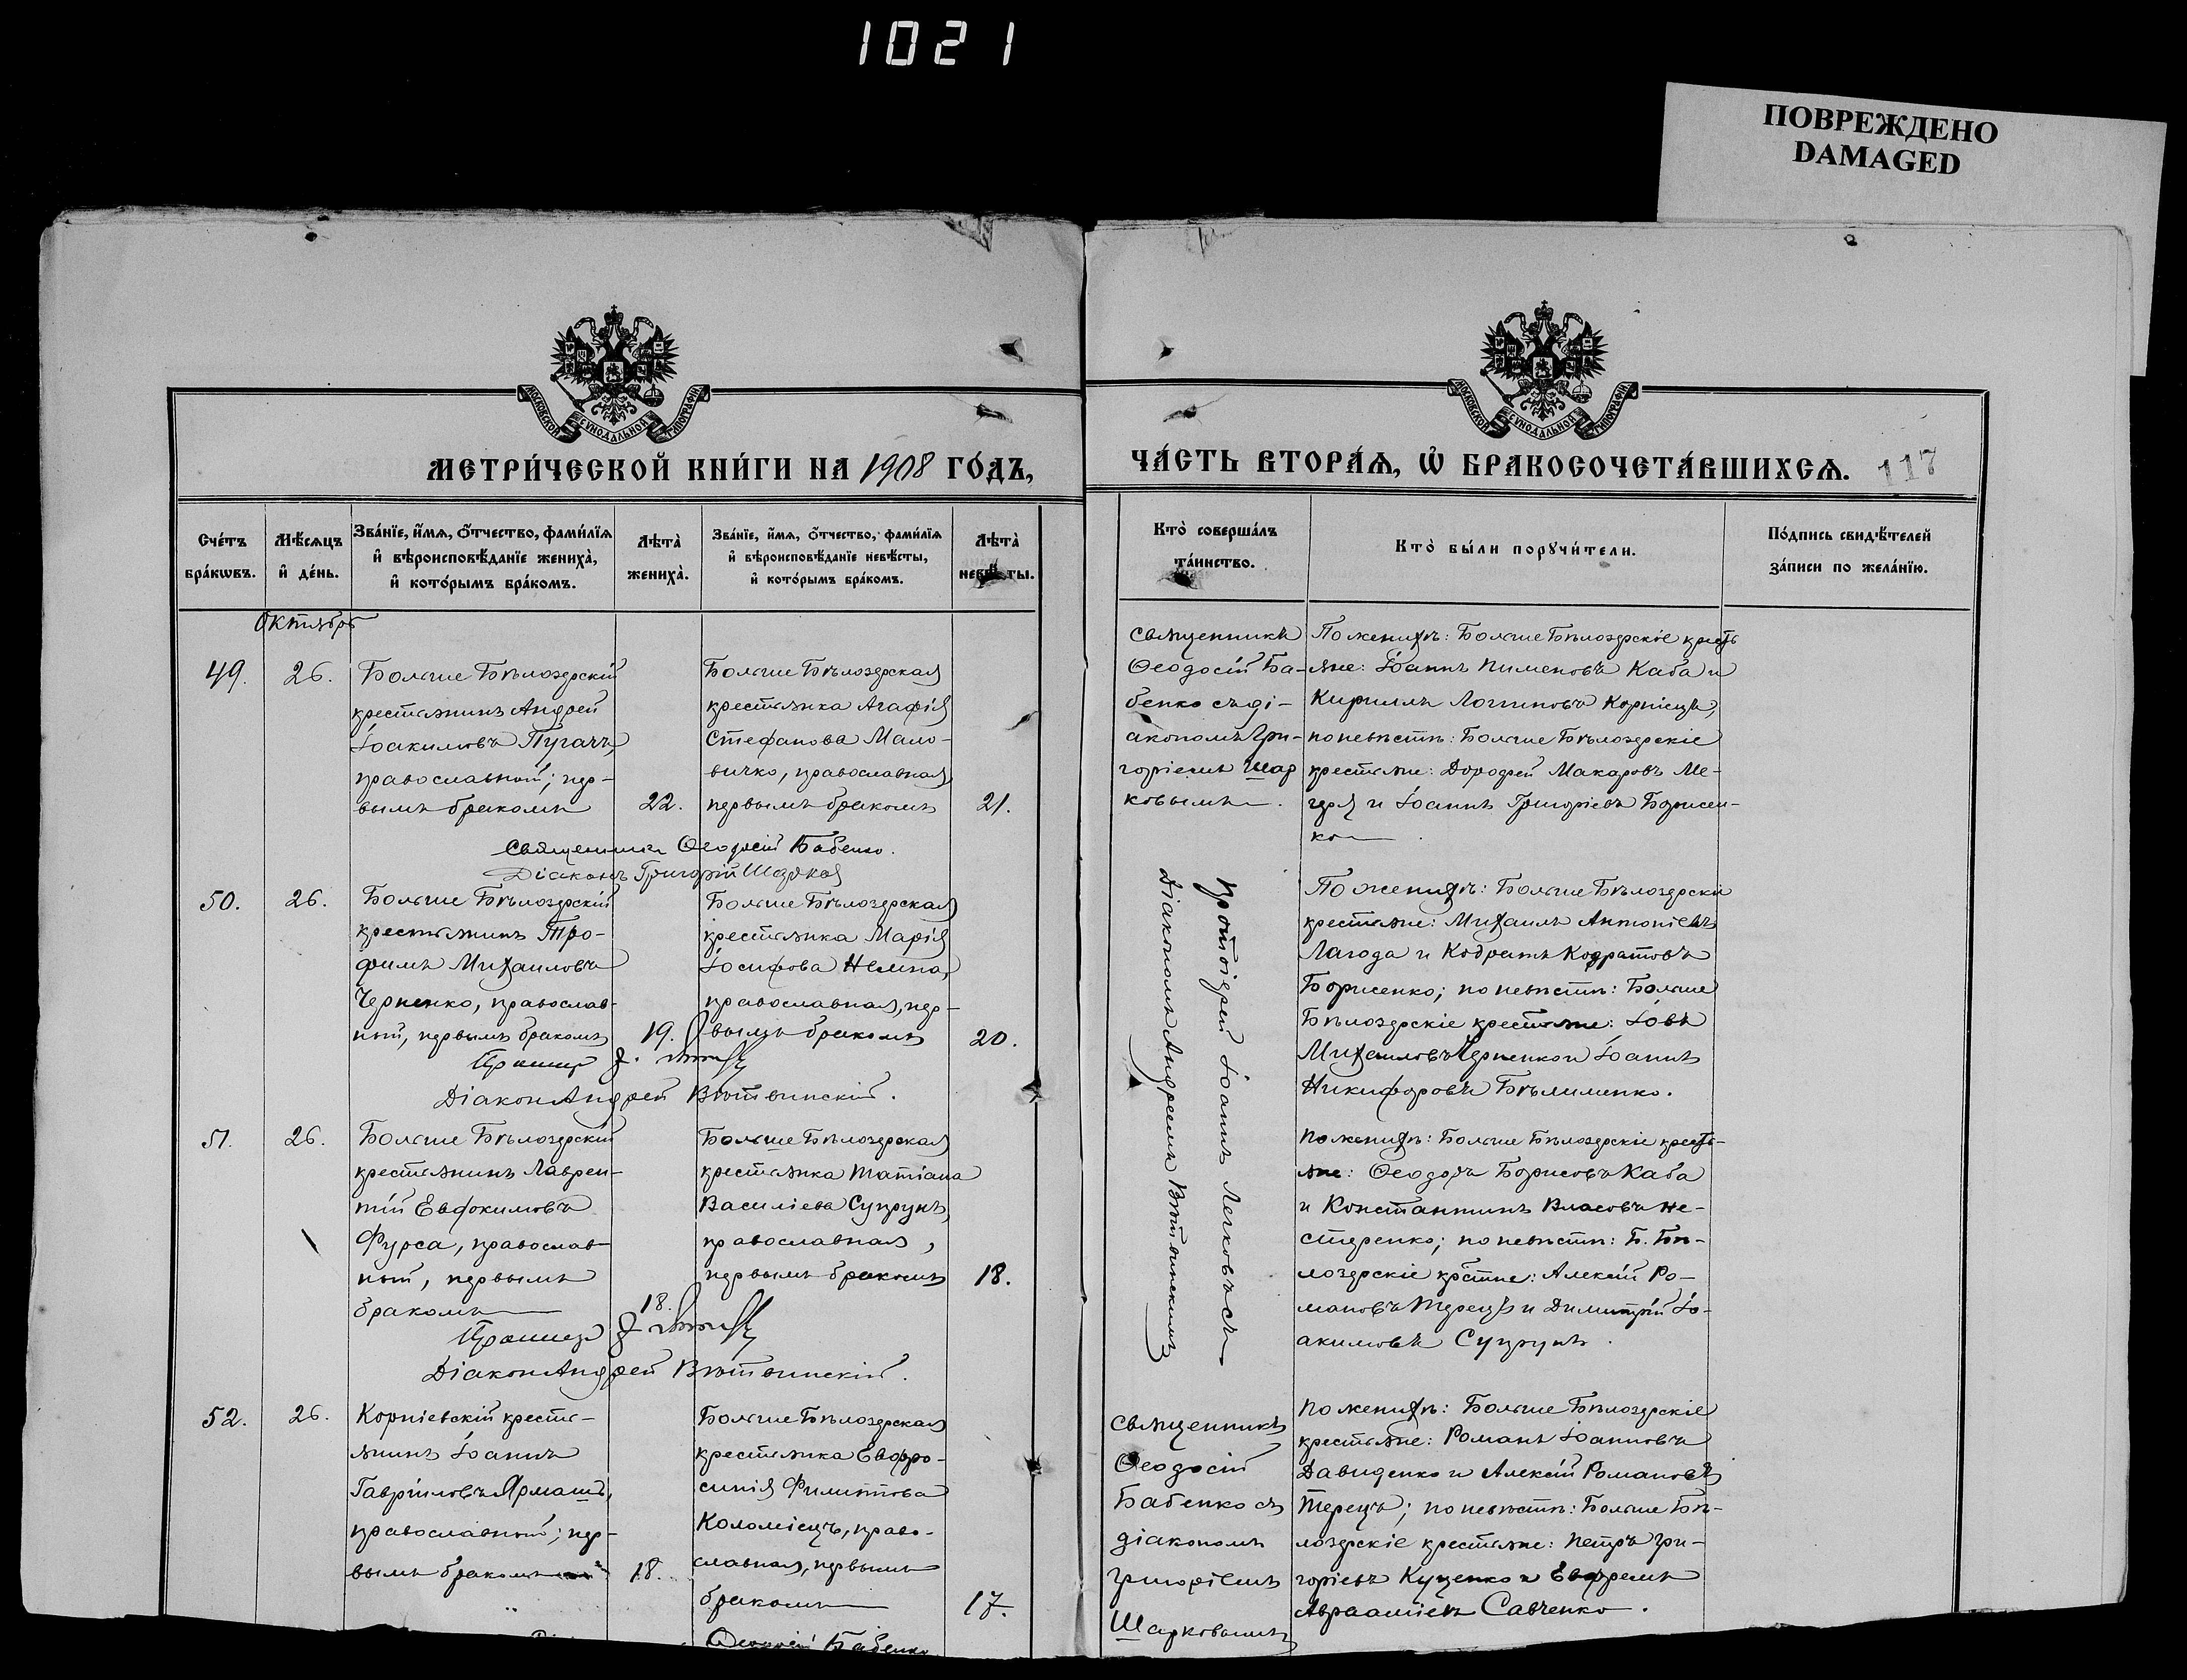 1021
ПОВРЕЖДЕНО
DAMAGED
МОСКОВСКОЙ СѴНОДАЛЬНОЙ ТИПОГРАФІИ
МОСКОВСКОЙ СѴНОДАЛЬНОЙ ТИПОГРАФІИ
МЕТРИ́ЧЕСКОЙ КНИ́ГИ НА 1908 ГО́ДЪ,
ЧА́СТЬ ВТОРА́Я, Ѡ҆ БРАКОСОЧЕТА́ВШИХСЯ.
117
Сче́тъ
бра́кѡвъ.
Мѣ́сяцъ
и҆ де́нь.
Зва́нїе, и҆́мя, ѻ҆́тчество, фами́лїя
и҆ вѣроисповѣ́данїе жениха̀,
и҆ кото́рымъ бра́комъ.
Лѣта̀
жениха̀.
Зва́нїе, и҆́мя, ѻ҆́тчество, фами́лїя
и҆ вѣроисповѣ́данїе невѣ́сты,
и҆ кото́рымъ бра́комъ.
Лѣта̀
невѣ́сты.
Кто̀ соверша́лъ
та́инство.
Кто̀ бы́ли порꙋчи́тели.
По́дпись свидѣ́телей
за́писи по жела́нїю.
Октябрь
49.
26.
Больше Бѣлозерскій
крестьянинъ Андрей
Іоакимовъ Пугачъ,
православный; пер-
вымъ бракомъ
22.
Больше Бѣлозерская
крестьянка Агафія
Стефанова Мало-
вичко, православная
первымъ бракомъ
21.
Священникъ
Ѳеодосій Ба-
бенко съ ді-
акономъ Гри-
горіемъ Шар
ковымъ.
По женихѣ: Больше Бѣлозерскіе кресть
яне: Іоаннъ Пименовъ Каба и
Кириллъ Логиновъ Корніецъ,
по невѣстѣ: Больше Бѣлозерскіе
крестьяне: Дорофей Макаровъ Ме-
геря и Іоаннъ Григоріевъ Борисен-
ко
Священникъ Ѳеодосій Бабенко.
Діаконъ Григорій Шарков
50.
26.
Больше Бѣлозерскій
крестьянинъ Тро-
фимъ Михаиловъ
Черненко, православ-
ный, первымъ бракомъ
19.
Больше Бѣлозерская
крестьянка Марія
Іосифова
православная, пер-
вымъ бракомъ
20.
Протоіерей Іоаннъ Легковъ съ
Діакономъ Андреемъ Витвинскимъ
По женихѣ: Больше Бѣлозерскіе
крестьяне: Михаилъ Антоніевъ
Лагода и Кодратъ Кодратовъ
Борисенко; по невѣстѣ: Больше
Бѣлозерскіе крестьяне: Іовъ
Михаиловъ Черненко и Іоаннъ
Никифоровъ Бѣлименко.
Діакон Андрей Витвинскій.
51.
26.
Больше Бѣлозерскій
крестьянинъ Лаврен-
тій Евфокимовъ
Фурса, православ-
ный, первымъ
бракомъ
18.
Больше Бѣлозерская
крестьянка Татіана
Василіева Супрунъ,
православная,
первымъ бракомъ
18.
По женихѣ: Больше Бѣлозерскіе кресть-
яне: Ѳеодоръ Борисовъ Каба
и Константинъ Власовъ Не-
стеренко; по невѣстѣ: Б. Бѣ-
лозерскіе крестне: Алексій Ро-
мановъ Терецъ и Димитрій Іо-
акимовъ Супрунъ.
Діакон Андрей Витвинскій.
52.
26.
Корніевскій кресть-
янинъ Іоаннъ
Гавріиловъ Ярмашъ,
православный; пер-
вымъ бракомъ
18.
Больше Бѣлозерская
крестьянка Евфро-
синія Филиппова
Коломіецъ, право-
славная, первымъ
бракомъ
17.
Священникъ
Ѳеодосій
Бабенко съ
діакономъ
Григоріемъ
Шарковымъ
По женихѣ: Больше Бѣлозерскіе
крестьяне: Романъ Іоанновъ
Давиденко и Алексій Романовъ
Терецъ; по невѣстѣ: Больше Бѣ-
лозерскіе крестьяне: Петръ Гри-
горіевъ Куценко и Евфремъ
Авраамiевъ Савченко.
Ѳеодосій Бабенко